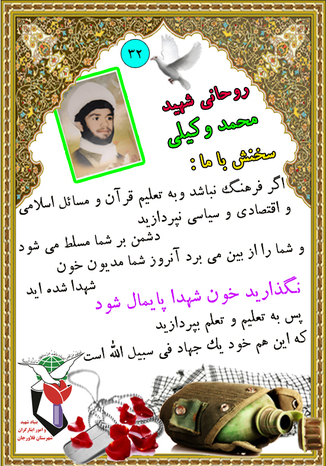 ۳۲
روحانی شهید
محمد وکیلی
سخنش با ما :
اگر فرهنگ نباشد و به تعلیم قرآن و مسائل اسلامی
و اقتصادی و سیاسی نپردازید
دشمن بر شما مسلط می شود
و شما را از بین می برد آنروز شما مدیون خون
شهدا شده اید
نگذارید خون شهدا پایمال شود
پس به تعلیم و تعلم بپردازید
که این هم خود یك جهاد فی سبیل الله است
بنیاد شهید
و امور ایثارگران
شهرستان فلاورجان